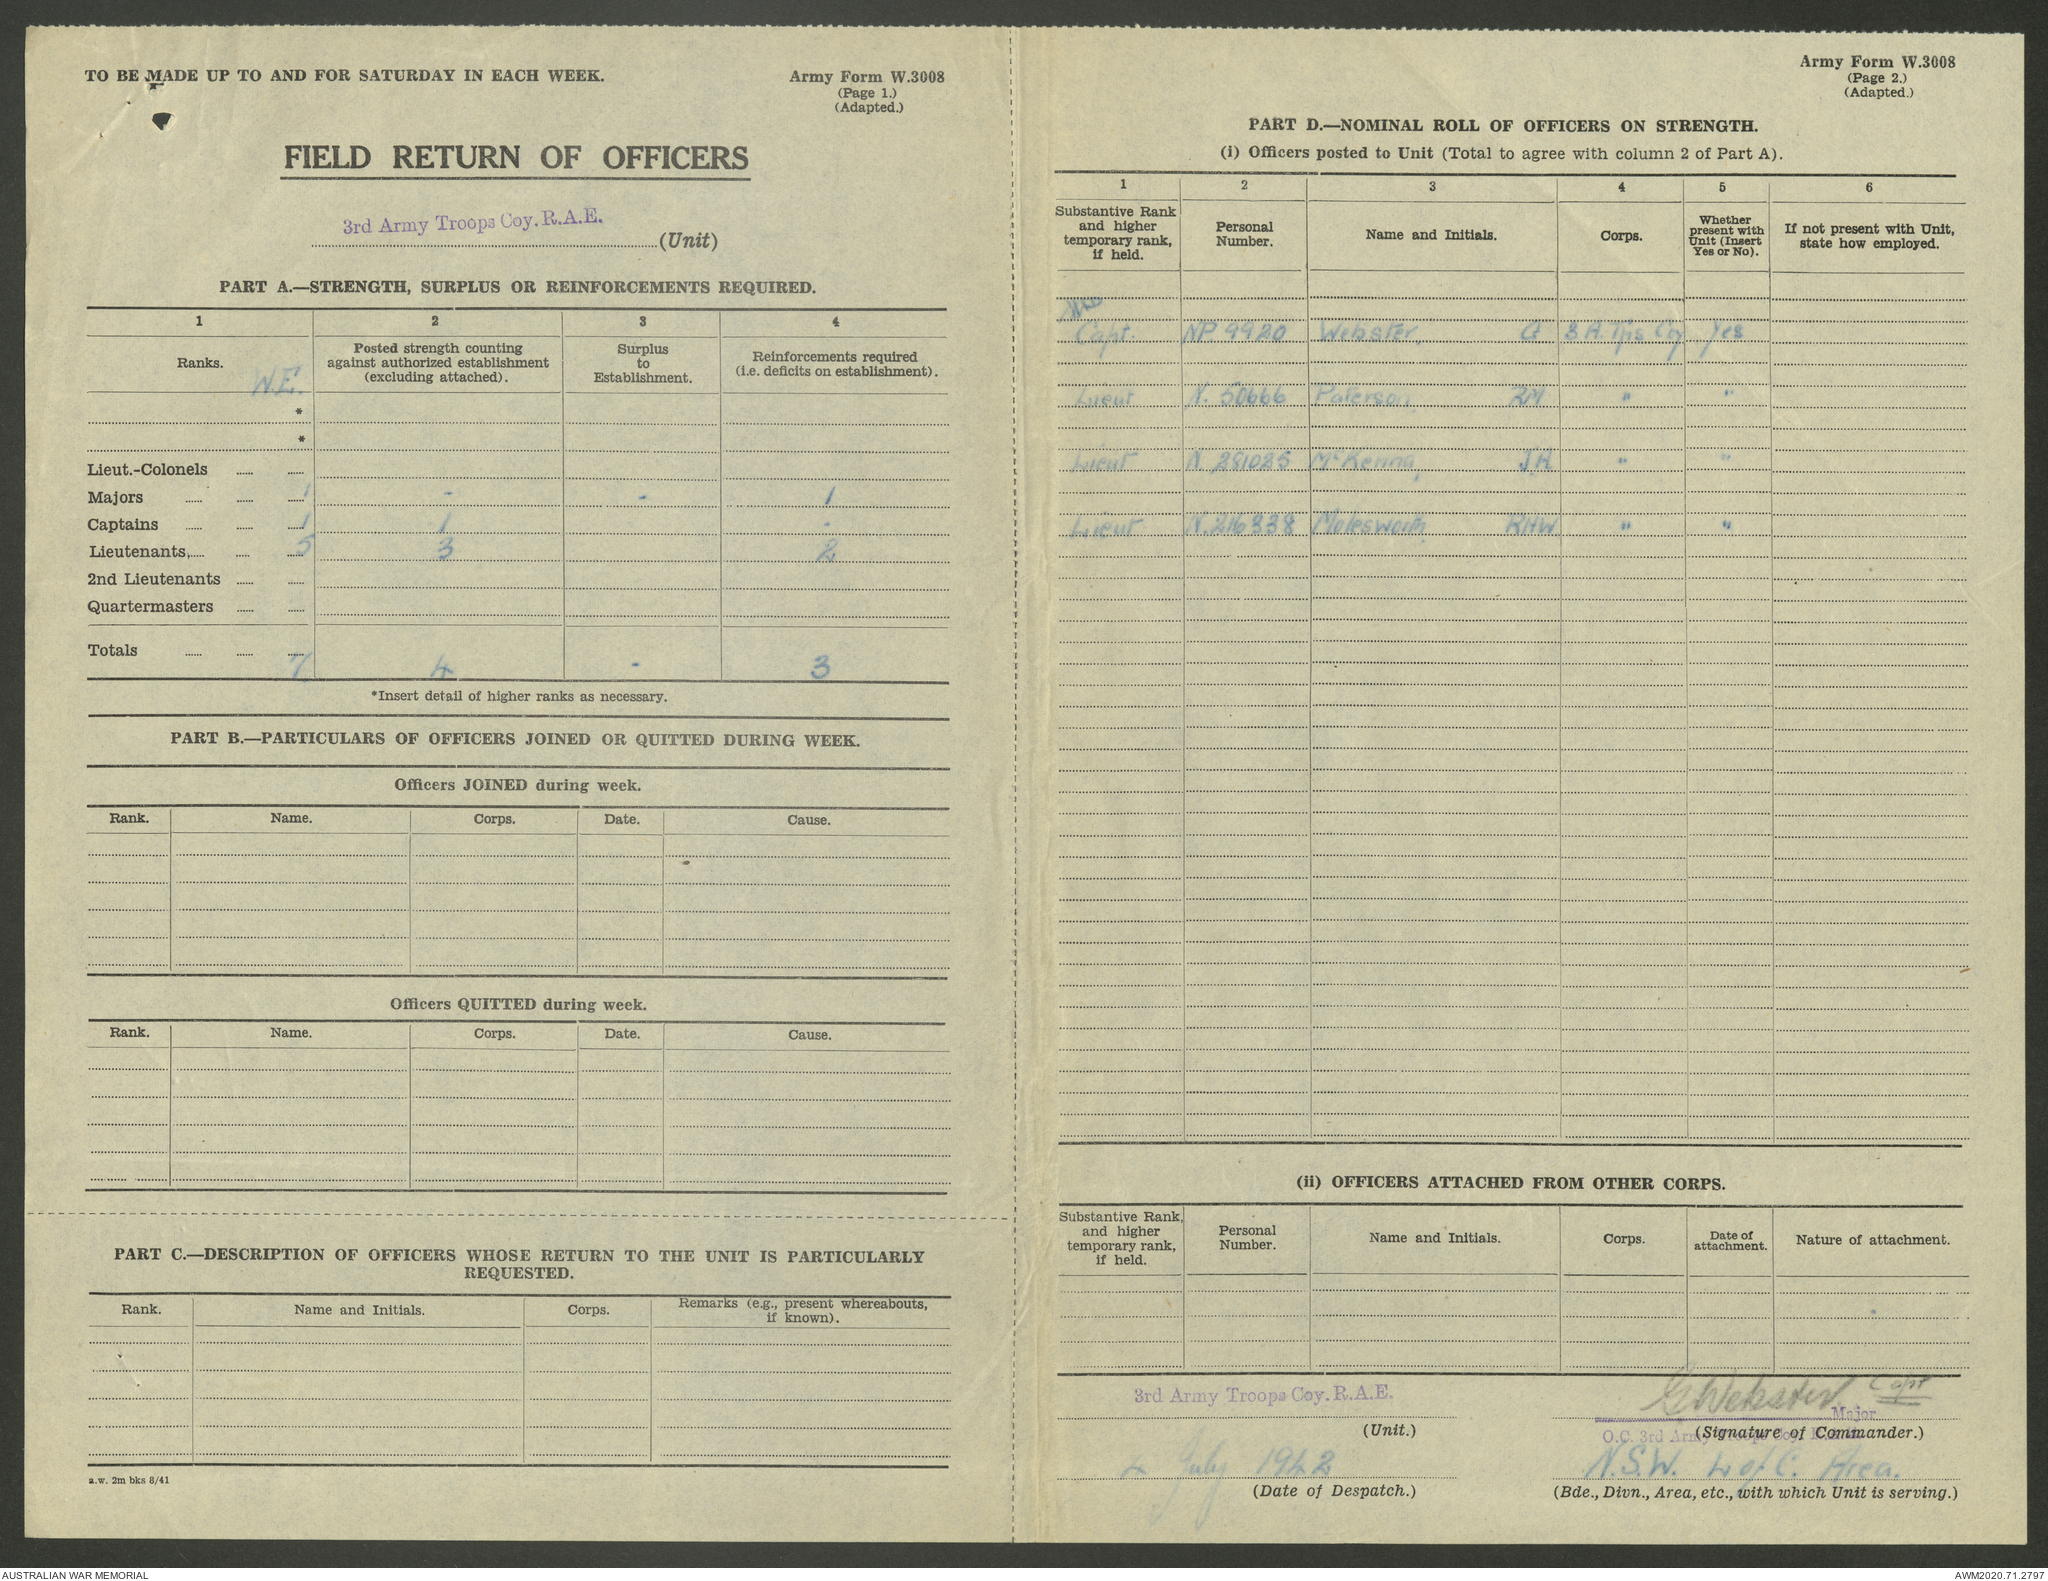 TO BE MADE UP TO AND FOR SATURDAY IN EACH WEEK.
Army Form W.3008
(Page 1.)
(Adapted.)
FIELD RETURN OF OFFICERS
3rd Army Troops Coy. R.A.E.
(Unit)
PART A.—STRENGTH, SURPLUS OR REINFORCEMENTS REQUIRED.
1 2 3 4
Ranks. W.E. Posted strength counting against authorized establishment (excluding attached). Surplus to Establishment. Reinforcements required (i.e. deficits on establishment).
*
*
Lieut.-Colonels
Majors 1 - - 1
Captains 1 1 -
Lieutenants, 5 3 2
2nd Lieutenants
Quartermasters
Totals 7 4 - 3
*Insert detail of higher ranks as necessary.
PART B.—PARTICULARS OF OFFICERS JOINED OR QUITTED DURING WEEK.
Officers JOINED during week.
Rank. Name. Corps. Date. Cause.
Officers QUITTED during week.
Rank. Name. Corps. Date. Cause.
PART C.—DESCRIPTION OF OFFICERS WHOSE RETURN TO THE UNIT IS PARTICULARLY
REQUESTED.
Rank. Name and Initials. Corps. Remarks (e.g., present whereabouts, if known).
a.w. 2m bks 8/41
Army Form W.3008
(Page 2.)
(Adapted.)
PART D.—NOMINAL ROLL OF OFFICERS ON STRENGTH.
(i) Officers posted to Unit (Total to agree with column 2 of Part A).
1 2 3 4 5 6
Substantive Rank and higher temporary rank, if held. Personal Number. Name and Initials. Corps. Whether present with Unit (Insert Yes or No). If not present with Unit, state how employed.
Capt. NP 9920 Webster, G 3 A. Tps Coy Yes
Lieut N. 50666 Paterson, RM " "
Lieut N. 281025 McKenna, J.H " "
Lieut N. 216338 Molesworth, RHW " "
(ii) OFFICERS ATTACHED FROM OTHER CORPS.
Substantive Rank, and higher temporary rank, if held. Personal Number. Name and Initials. Corps. Date of attachment. Nature of attachment.
3rd Army Troops Coy. R.A.E.
(Unit.)
4 July 1942
(Date of Despatch.)
G Webster Capt
Major
O.C. 3rd Army Troops Coy.
(Signature of Commander.)
N.S.W. L of C. Area.
(Bde., Divn., Area, etc., with which Unit is serving.)
AUSTRALIAN WAR MEMORIAL
AWM2020.71.2797